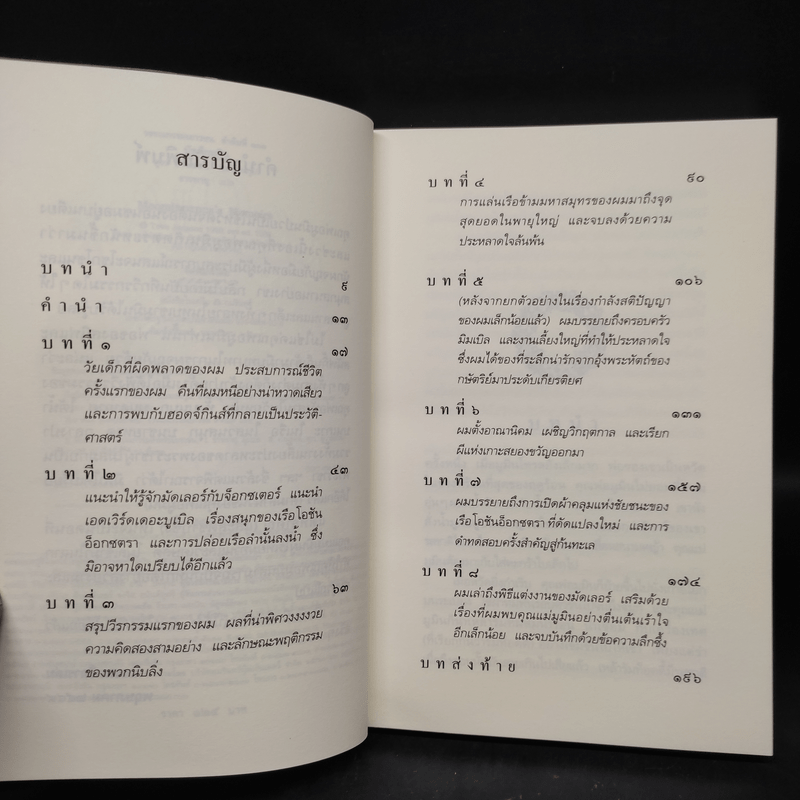 สารบัญ
บทนำ ๙
คำนำ ๑๓
บทที่ ๑ ๑๗
วัยเด็กที่ผิดพลาดของผม ประสบการณ์ชีวิต
ครั้งแรกของผม คืนที่ผมหนีอย่างน่าหวาดเสียว
และการพบกับฮอดจ์กินส์ที่กลายเป็นประวัติ-
ศาสตร์
บทที่ ๒ ๔๓
แนะนำให้รู้จักมัดเลอร์กับจ็อกซเตอร์ แนะนำ
เอดเวิร์ดเดอะบูเบิล เรื่องสนุกของเรือโอชัน
อ็อกซตรา และการปล่อยเรือลำนั้นลงน้ำ ซึ่ง
มิอาจหาใดเปรียบได้อีกแล้ว
บทที่ ๓ ๖๓
สรุปวีรกรรมแรกของผม ผลที่น่าพิศวงงงงวย
ความคิดสองสามอย่าง และลักษณะพฤติกรรม
ของพวกนิบลิ่ง
บทที่ ๔ ๙๐
การแล่นเรือข้ามมหาสมุทรของผมมาถึงจุด
สุดยอดในพายุใหญ่ และจบลงด้วยความ
ประหลาดใจล้นพ้น
บทที่ ๕ ๑๐๖
(หลังจากยกตัวอย่างในเรื่องกำลังสติปัญญา
ของผมเล็กน้อยแล้ว) ผมบรรยายถึงครอบครัว
มิมเบิล และงานเลี้ยงใหญ่ที่ทำให้ประหลาดใจ
ซึ่งผมได้ของที่ระลึกน่ารักจากอุ้งพระหัตถ์ของ
กษัตริย์มาประดับเกียรติยศ
บทที่ ๖ ๑๓๑
ผมตั้งอาณานิคม เผชิญวิกฤตกาล และเรียก
ผีแห่งเกาะสยองขวัญออกมา
บทที่ ๗ ๑๕๗
ผมบรรยายถึงการเปิดผ้าคลุมแห่งชัยชนะของ
เรือโอชันอ็อกซตรา ที่ดัดแปลงใหม่ และการ
ดำทดสอบครั้งสำคัญสู่ก้นทะเล
บทที่ ๘ ๑๗๔
ผมเล่าถึงพิธีแต่งงานของมัดเลอร์ เสริมด้วย
เรื่องที่ผมพบคุณแม่มูมินอย่างตื่นเต้นเร้าใจ
อีกเล็กน้อย และจบบันทึกด้วยข้อความลึกซึ้ง
บทส่งท้าย ๑๙๖